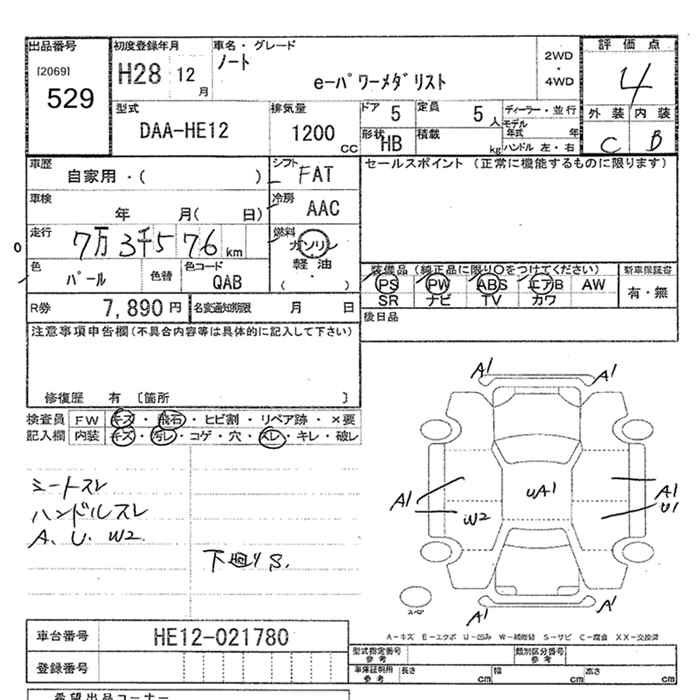 出品番号
[2069]
529
初度登録年月
H28 12 月
車名・グレード
ノート
e-パワーメダリスト
2WD
・
4WD
評価点
4
外装 内装
C B
型式
DAA-HE12
排気量
1200 cc
ドア 5
定員 5 人
形状 HB
積載 kg
ディーラー・並行
モデル年式 年
ハンドル 左・右
車歴
自家用・( )
シフト FAT
車検
年 月( 日)
冷房 AAC
走行
7万 3千5 76 km
燃料
ガソリン
軽・油
( )
色
パール
色替
色コード
QAB
R券 7,890 円
名変通知期限 月 日
セールスポイント (正常に機能するものに限ります)
装備品 (純正品に限り○をつけてください)
PS PW ABS エアB AW
SR ナビ TV カワ
新車保証書
有・無
後日品
注意事項申告欄(不具合内容等は具体的に記入して下さい)
修復歴 有 [箇所 ]
検査員
記入欄
FW キズ・飛石・ヒビ割・リペア跡・×要
内装 キズ・汚レ・コゲ・穴・スレ・キレ・破レ
シートスレ
ハンドルスレ
A、U、W2
下廻りS.
A1 A1
A1 UA1 A1
U1
W2
スペア
A1 A1
A-キズ E-エクボ U-凹み W-補修跡 S-サビ C-腐食 XX-交換済
車台番号 HE12-021780
登録番号
型式指定番号
参考
類別区分番号
参考
車庫証明用
参考
長さ cm 幅 cm 高さ cm
希望出品コーナー